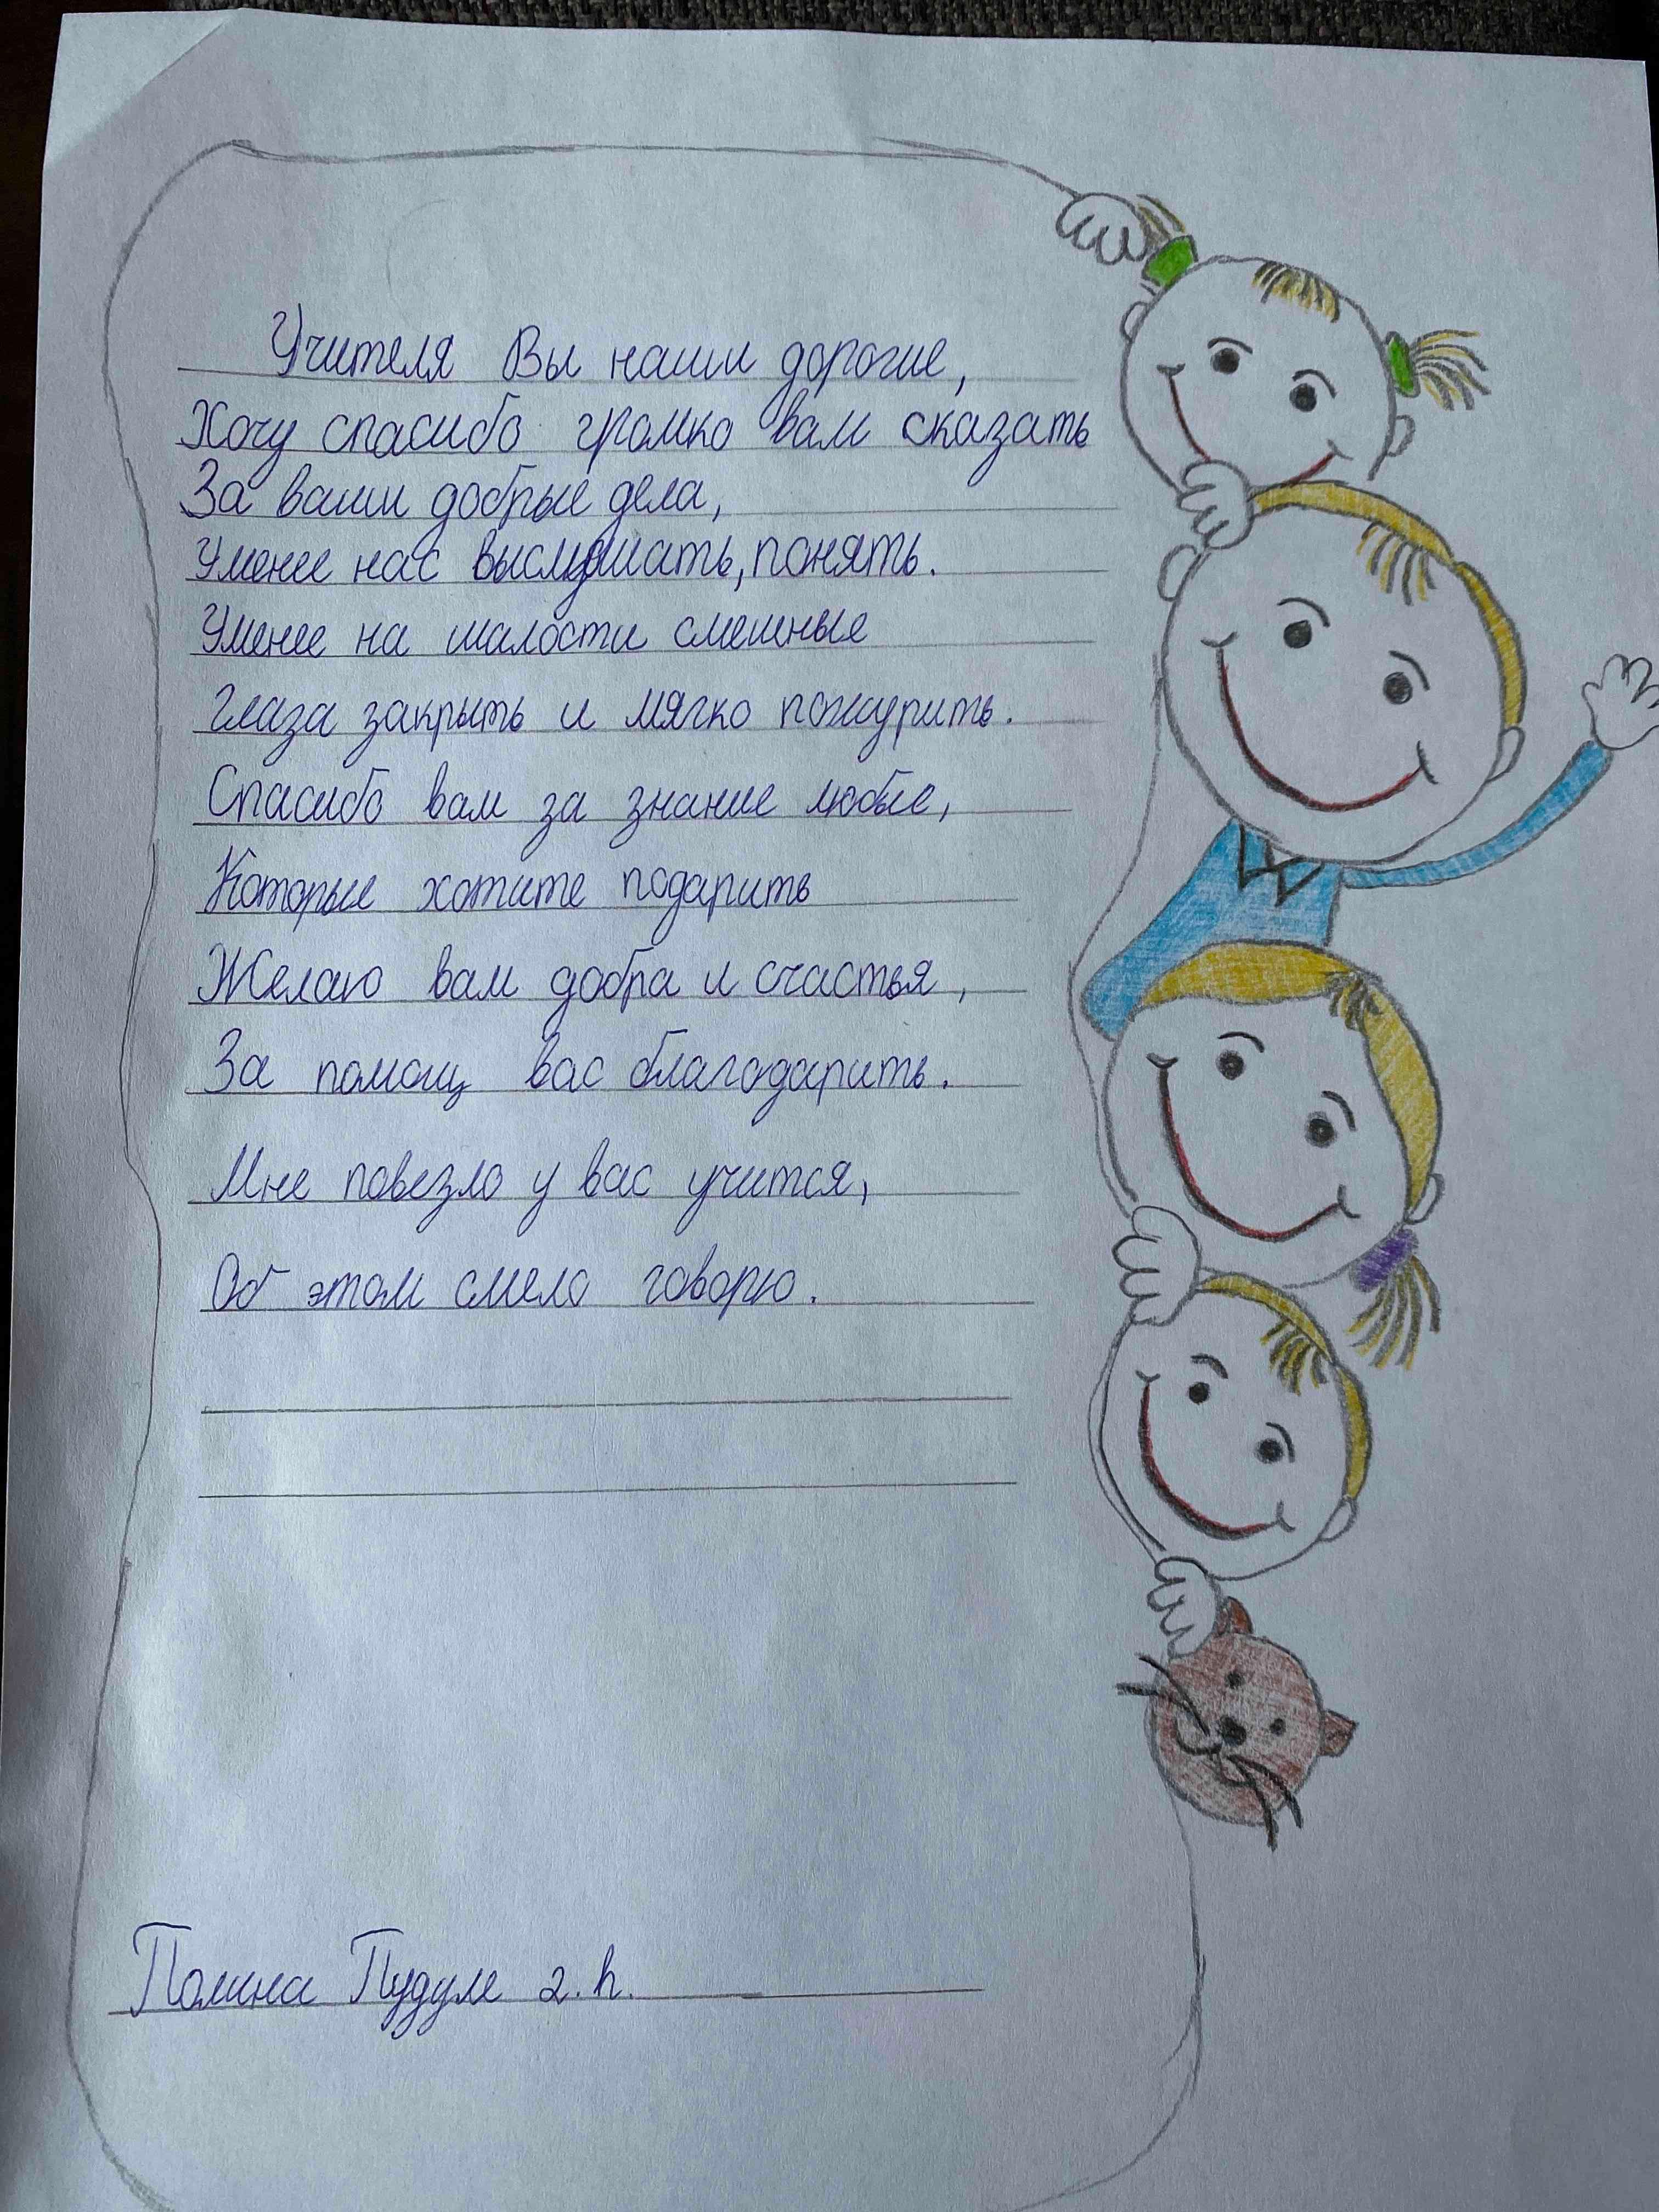 Учителя Вы наши дорогие,
Хочу спасибо громко вам сказать
За ваши добрые дела,
Умение нас выслушать, понять.
Умение на шалости смешные
Глаза закрыть и мягко пожурить.
Спасибо вам за знание любые,
Которые хотите подарить
Желаю вам добра и счастья,
За помощ вас благодарить.
Мне повезло у вас учится,
Об этом смело говорю.
Полина Пудуле 2. h.